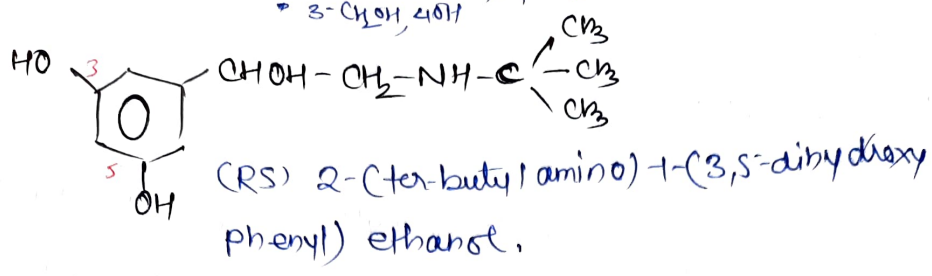 • 3-CH2OH, 4OH
CH3
HO 3 CHOH-CH2-NH-C-CH3
CH3
5
OH
(RS) 2-(ter-butyl amino)-1-(3,5-dihydroxy
phenyl) ethanol.